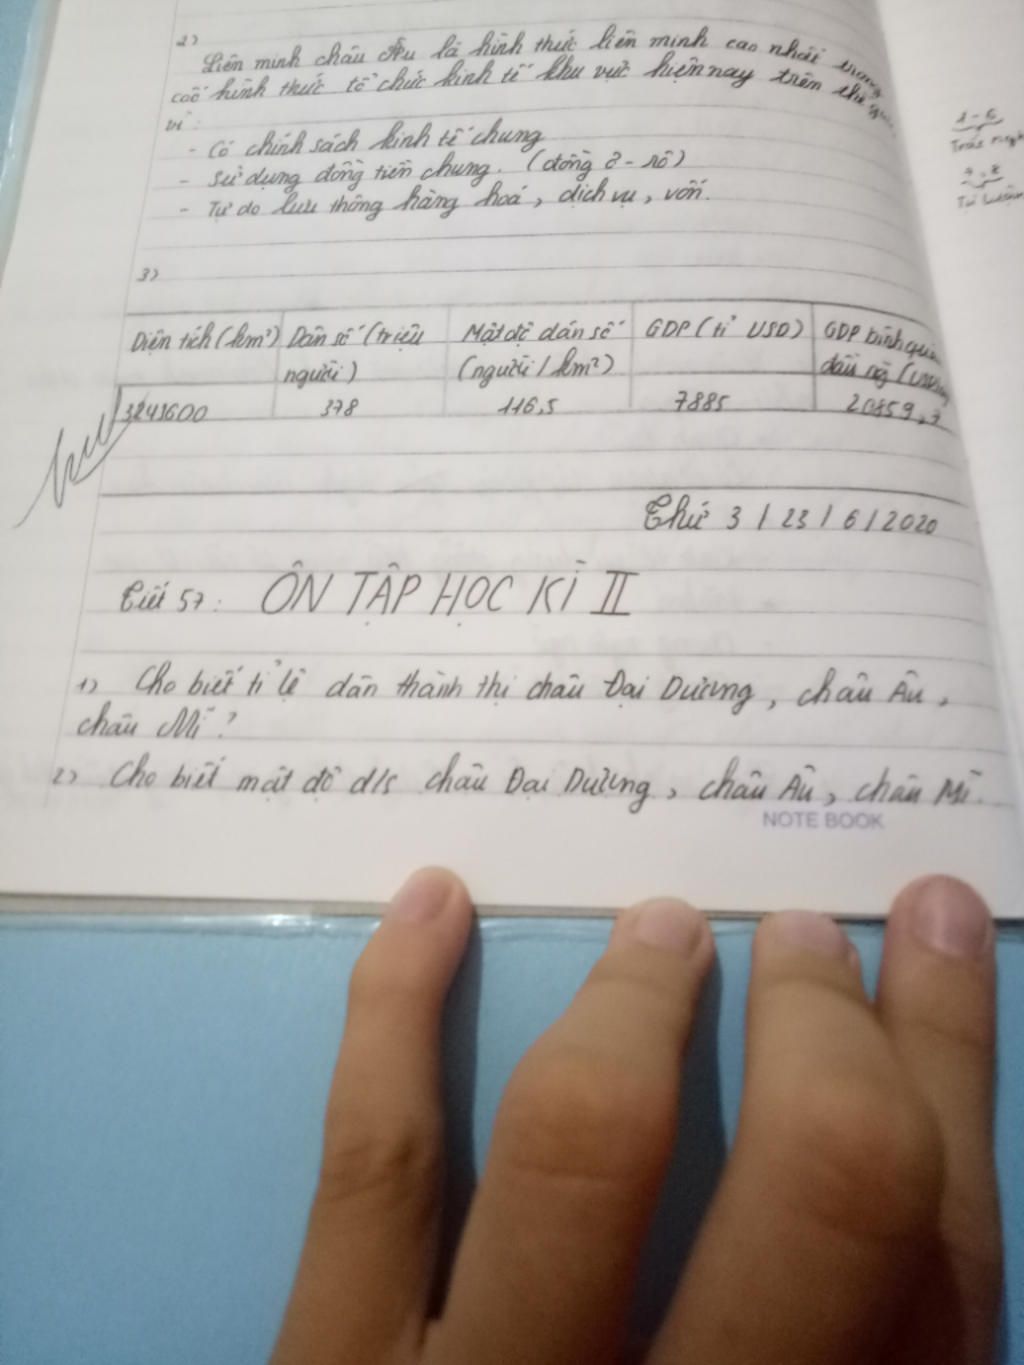 2)
Liên minh châu Âu là hình thức liên minh cao nhất trong
các hình thức tổ chức kinh tế khu vực hiện nay trên thế giới
vì:
- Có chính sách kinh tế chung
- Sử dụng đồng tiền chung. (đồng ơ-rô)
- Tự do lưu thông hàng hoá, dịch vụ, vốn.
1-6
Trắc
7,8
Tự Luận
3)
Diện tích (km²) Dân số (triệu người) Mật độ dân số (người/km²) GDP (tỉ USD) GDP bình quân đầu ng
3243600 378 116,5 7885 20859,7
Thứ 3 / 23 / 6 / 2020
Tiết 57: ÔN TẬP HỌC KÌ II
1) Cho biết tỉ lệ dân thành thị châu Đại Dương, châu Âu,
châu Mĩ?
2) Cho biết mật độ d/s châu Đại Dương, châu Âu, châu Mĩ.
NOTE BOOK